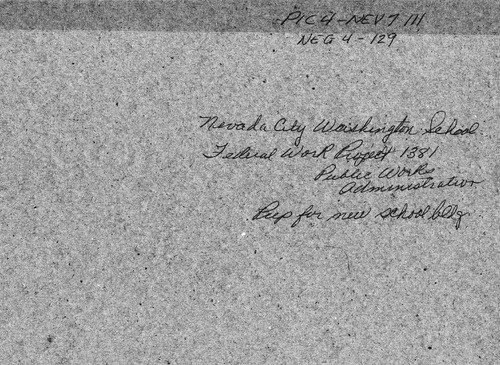 PIC 4 - NEV 7 111
NEG 4 - 129
Nevada City Washington School
Federal Work Project 1381
Public Works
Administration
Prep for new school bldg